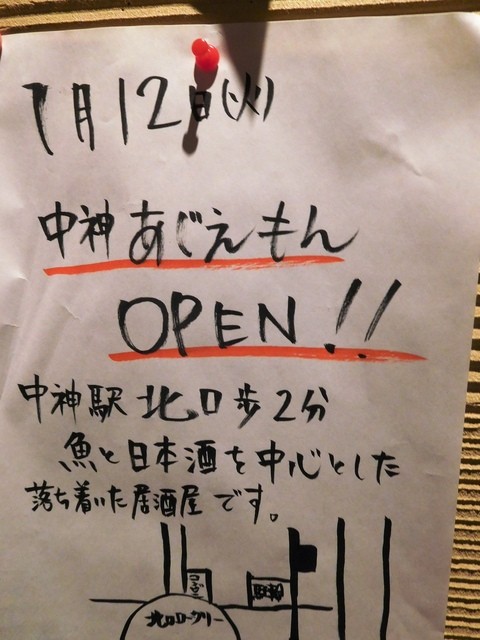 1月12日(火)
中神あじえもん
OPEN!!
中神駅北口歩2分
魚と日本酒を中心とした
落ち着いた居酒屋です。
コンビニ
北口ロータリー